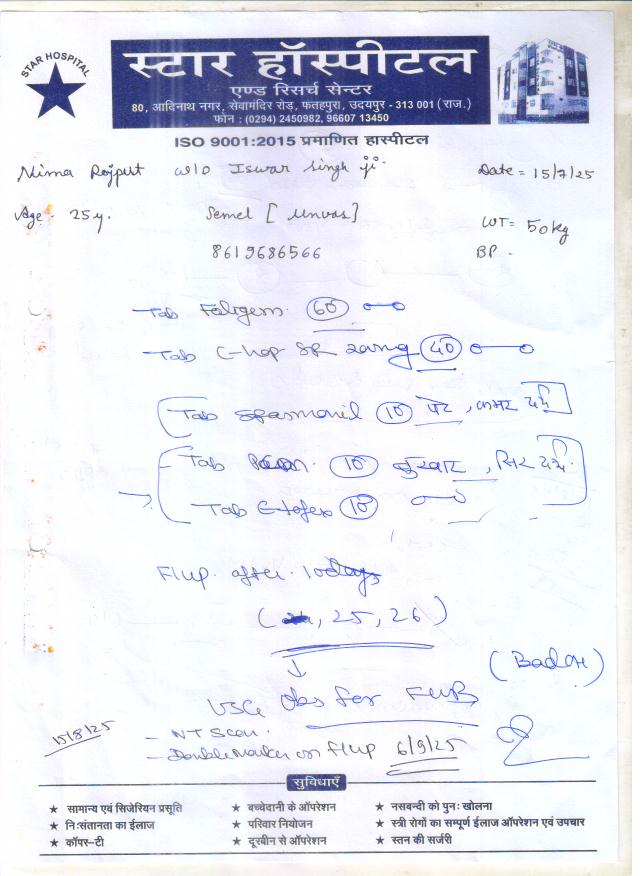 STAR HOSPITAL
स्टार हॉस्पीटल
एण्ड रिसर्च सेन्टर
80, आदिनाथ नगर, सेवामंदिर रोड़, फतहपुरा, उदयपुर - 313 001 (राज.)
फोन : (0294) 2450982, 96607 13450
ISO 9001:2015 प्रमाणित हास्पीटल
Nima Rajput w/o Iswar singh ji.
Date = 15/7/25
Age - 25 y.
Semel [ Unvas]
WT = 50kg
8619686566
BP -
Tab 60
Tab 40
Tab Spasmonil 10 पेट, कमर दर्द
Tab 10 बुखार, सिर दर्द
Tab 10
F/up. after 10 days
( 24, 25, 26 )
(Bad OH)
USG Obs for FWB
15/8/25
- NT Scan.
- Double Marker on F/up 6/9/25
सुविधाएँ
★ सामान्य एवं सिजेरियन प्रसूति
★ बच्चेदानी के ऑपरेशन
★ नसबन्दी को पुनः खोलना
★ निःसंतानता का ईलाज
★ परिवार नियोजन
★ स्त्री रोगों का सम्पूर्ण ईलाज ऑपरेशन एवं उपचार
★ कॉपर-टी
★ दूरबीन से ऑपरेशन
★ स्तन की सर्जरी